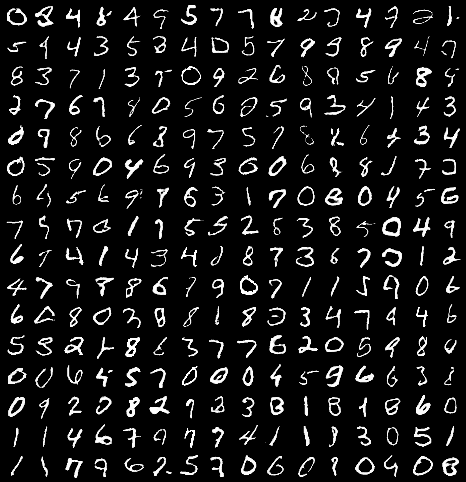 0 3 4 8 4 9 5 7 7 8 2 2 4 7 2 1
5 9 4 3 5 8 4 0 5 7 9 9 8 9 4 7
8 3 7 1 3 5 0 9 2 6 8 8 5 6 8 4
2 7 6 7 8 0 5 6 2 5 9 3 4 1 4 3
0 9 8 6 6 8 9 7 5 7 8 8 6 4 3 4
0 5 9 0 4 6 9 3 6 0 6 8 8 1 7 2
6 4 5 6 9 8 6 3 1 7 0 8 0 4 5 6
7 5 7 0 1 9 5 5 2 8 3 8 5 0 4 9
6 9 4 1 4 3 4 2 8 7 3 6 7 0 1 2
4 7 9 8 8 6 9 9 0 7 1 1 5 9 0 6
6 2 8 0 3 8 8 1 8 3 3 4 7 4 4 6
5 3 2 4 8 6 3 7 7 6 2 0 5 9 8 4
0 0 6 4 5 7 0 0 0 4 5 9 6 6 3 8
0 9 2 0 8 2 9 2 3 8 1 8 1 8 6 0
1 1 4 6 7 9 7 9 4 1 1 8 3 0 5 1
1 1 7 9 6 2 5 7 0 6 0 8 0 9 0 8